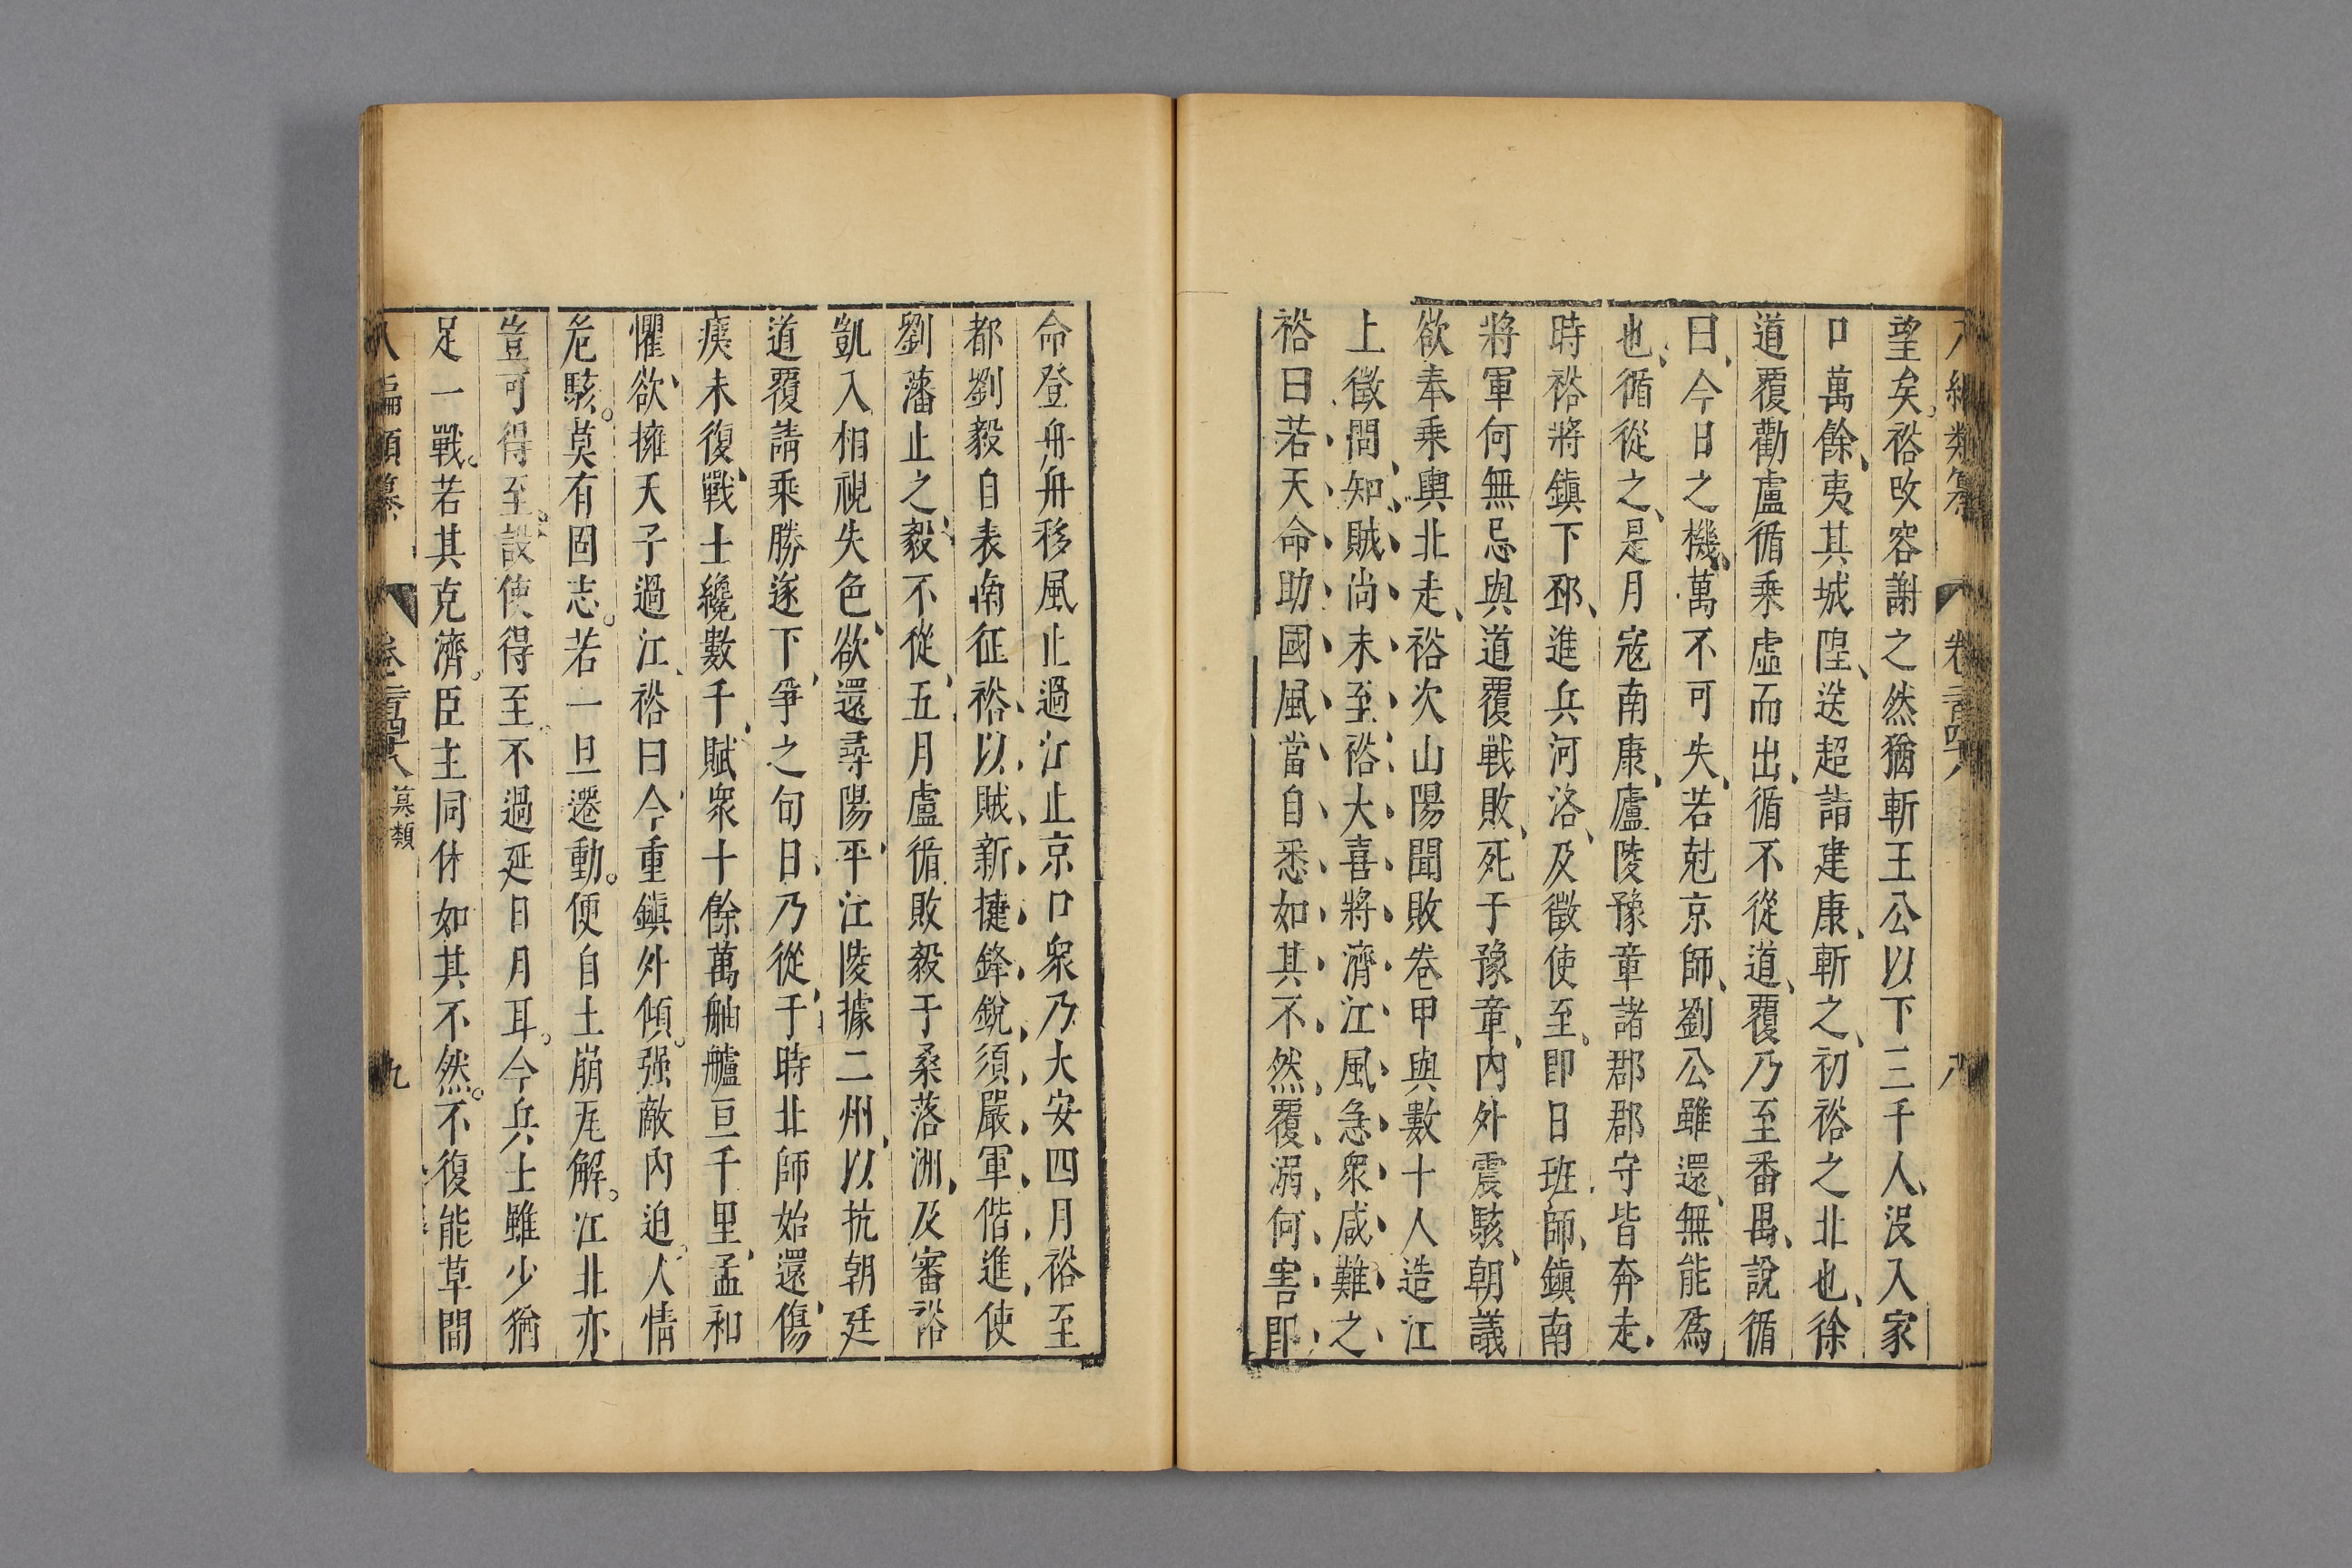 八編類纂 卷二百四十八 八
望矣裕改容謝之然猶斬王公以下三千人没入家
口萬餘夷其城隍送超詣建康斬之初裕之北也徐
道覆勸盧循乘虛而出循不從道覆乃至番禺說循
曰今日之機萬不可失若尅京師劉公雖還無能為
也循從之是月寇南康廬陵豫章諸郡郡守皆奔走
時裕將鎮下邳進兵河洛及徵使至即日班師鎮南
將軍何無忌與道覆戰敗死于豫章內外震駭朝議
欲奉乘輿北走裕次山陽聞敗卷甲與數十人造江
上徵問知賊尚未至裕大喜將濟江風急衆咸難之
裕曰若天命助國風當自悉如其不然覆溺何害即
命登舟舟移風止過江止京口衆乃大安四月裕至
都劉毅自表南征裕以賊新捷鋒銳須嚴軍偕進使
劉藩止之毅不從五月盧循敗毅于桑落洲及審裕
凱入相視失色欲還尋陽平江陵據二州以抗朝廷
道覆請乘勝遂下爭之旬日乃從于時北師始還傷
痍未復戰士纔數千賊衆十餘萬舳艫亘千里孟和
懼欲擁天子過江裕曰今重鎮外傾强敵內迫人情
危駭莫有固志若一旦遷動便自土崩瓦解江北亦
豈可得至設使得至不過延日月耳今兵士雖少猶
足一戰若其克濟臣主同休如其不然不復能草間
八編類纂 卷二百四十八 纂類 九